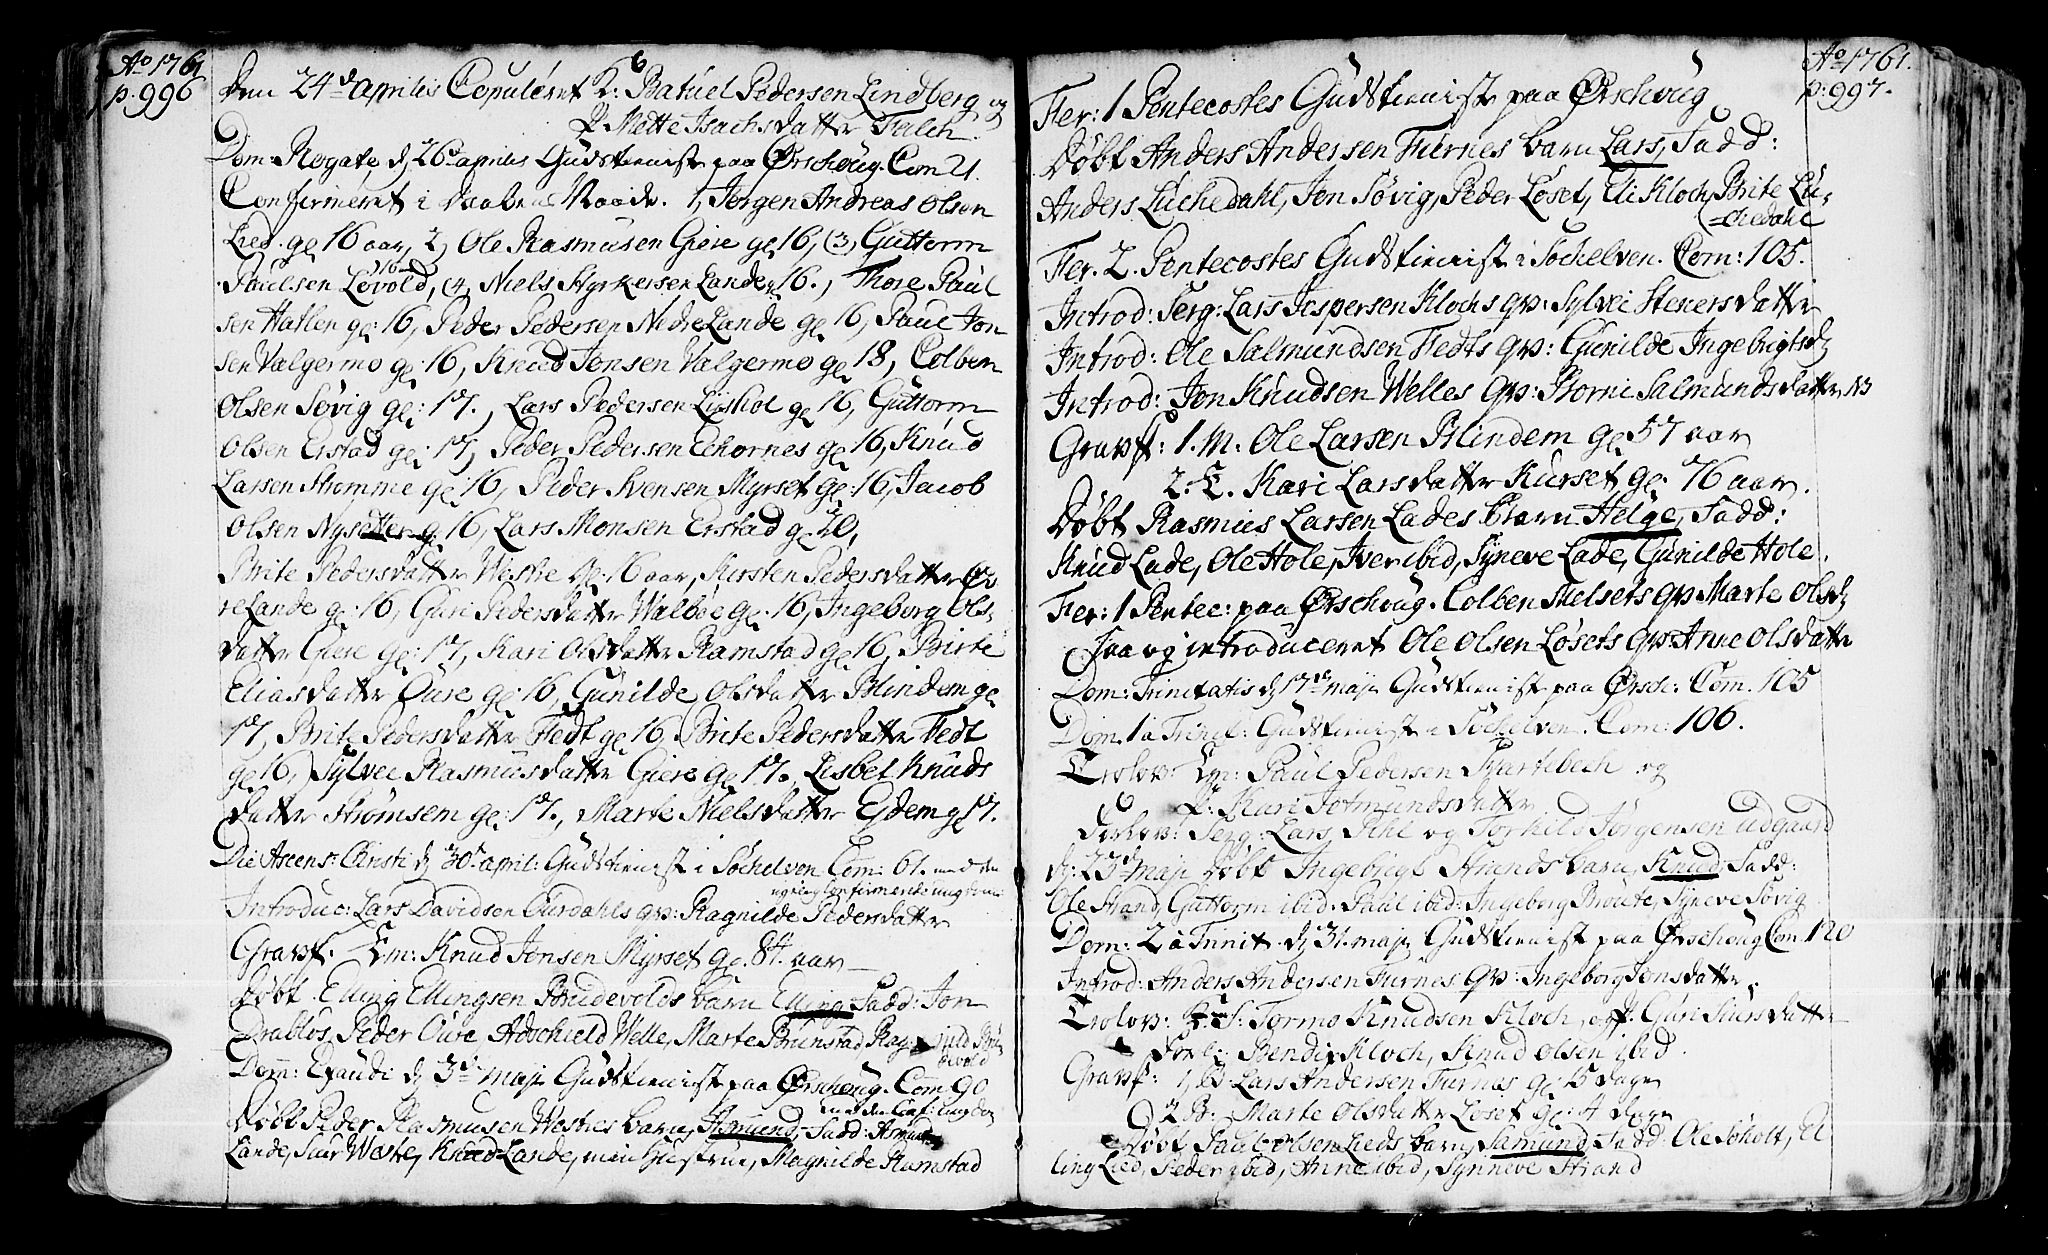 Ao 1761
p. 996
den 24de Aprilis Copuleret K: Batüel Pedersen Lindberg og
P. Mette Isachsdatter Falch.
Dom: Rogate, d 26 aprilis Gudstienist paa Ørschoug. Com 21.
Confirmeret i 1, Jørgen Andreas Olsen
Lied. gl 16 aar, 2, Ole Rasmusen Giere gl 16, (3, Guttorm
Paulsen Løvold, 16 (4, Niels Styrkersen Lande 16., Thore Paul
sen Hatlen gl: 16, Peder Pedersen Nedre Lande gl 16, Paul Jon
sen Valgermo gl: 16, Knud Jonsen Valgermo gl 18, Colben
Olsen Søvig gl: 17., Lars Pedersen Liishol gl 16, Guttorm
Olsen Erstad gl: 17, Peder Pedersen Echornes gl 16, Knud
Larsen Strømme gl 16, Peder Svensen Myrset gl: 16, Jacob
Olsen Nysetter g 16, Lars Monsen Erstad gl 20,
Brite Pedersdatter Westre gl: 16 aar, Kirsten Pedersdatter Øv
reLande gl: 16, Guri Pedersdatter Walbøe gl: 16, Ingeborg Ols-
datter Giere gl: 17, Kari Olsdatter Ramstad gl 16, Birte
Eliasdatter Oure gl: 16, Gunilde Olsdatter Blindem gl
17, Brite Pedersdatter Fedt gl 16, Brite Pedersdatter Fedt
gl 16, Sylvei Rasmusdatter Giere gl 17. Lisbet Knuds
datter Strømsem gl: 17., Marte Nielsdatter Ejdem gl 17.
Die Ascens: Christi d 30t april: Gudstienist i Søchelven Com: 61. med den
ung
Introduc: Lars Davidsen Ourdahls qv: Ragnilde Pedersdatter
Gravf. Em: Knud Jonsen Myrset gl. 84. aar
Døbt. Elling Ellingsen Brudevolds barn Elling, Fadd: Jon
Drabløs, Peder Oure, Adschield Welle, Marte Brunstad, Rag nild Bru
devold
Dom: Exaudi d 3de maji Gudstienist paa Ørschoug. Com 90
med den Conf: ungdom
Døbt Peder Rasmusen Westres barn, Asmund, Fadd: Asmund
Lande, Siur Westre, Knud Lande, min Hustrue, Magnilde Ramstad
Ao 1761.
p: 997.
Fer: 1 Pentecostes Gudstienist paa Ørschoug
Døbt Anders Andersen Furnes barn Lars, Fadd:
Anders Luchedahl, Jon Søvig, Peder Løset, Eli Kloch, Brite Lu-
chedahl
Fer. 2. Pentecostes Gudstienist i Søchelven. Com: 105.
Introd: Serg: Lars Jespersen Klochs qv: Sylvei Stenersdatter
Introd: Ole Salmundsen Fedts qv: Gunilde Ingebrigtsd
Introd: Jon Knudsen Welles qv: Borni Salmundsdatter NB
Gravf: 1. M. Ole Larsen Blindem gl 57 aar
2. E. Kari Larsdatter Kurset gl. 76 aar.
Døbt Rasmus Larsen Lades barn Helge, Fadd:
Knud Lade, Ole Hole, Iver ibid, Syneve Lade, Gunilde Hole.
Fer: 1 Pentec: paa Ørschoug. Colben Melsets qv Marte Olsd
Saa og introduceret Ole Olsen Løsets qv: Anne Olsdatter
Dom: Trinitatis d 17de maji Gudstienist paa Ørsch: Com. 105
Dom 1 a Trinit: Gudstienist i Søchelven. Com: 106.
Trolov: Em: Paul Pedersen Svartebech og
P. Kari Jotmundsdatter
Forlov: Serg: Lars Dahl og Torkild Jørgensen Udgaard
d. 23de maji Døbt Ingebrigt Strands barn, Knud, Fadd:
Ole Strand, Guttorm ibid. Paul ibid: Ingeborg Broute, Syneve Søvig
Dom: 2 a Trinit. d 31. maji Gudstienist paa Ørschoug Com 120
Introd: Anders Andersen Furnes qv: Ingeborg Jonsdatter.
Trolov: S: Tormo Knudsen Kloch, og P. Guri Siursdatter
Forl: Bendix Kloch, Knud Olsen ibid.
Gravf: 1, B Lars Andersen Furnes gl 15 dage
2 B: Marte Olsdatter Løset gl: 4 dage
Døbt Paul Olsen Lieds barn, Samund, Fadd: Ole Søholt, El
ling Lied, Peder ibid, Anne ibid, Synneve Strand